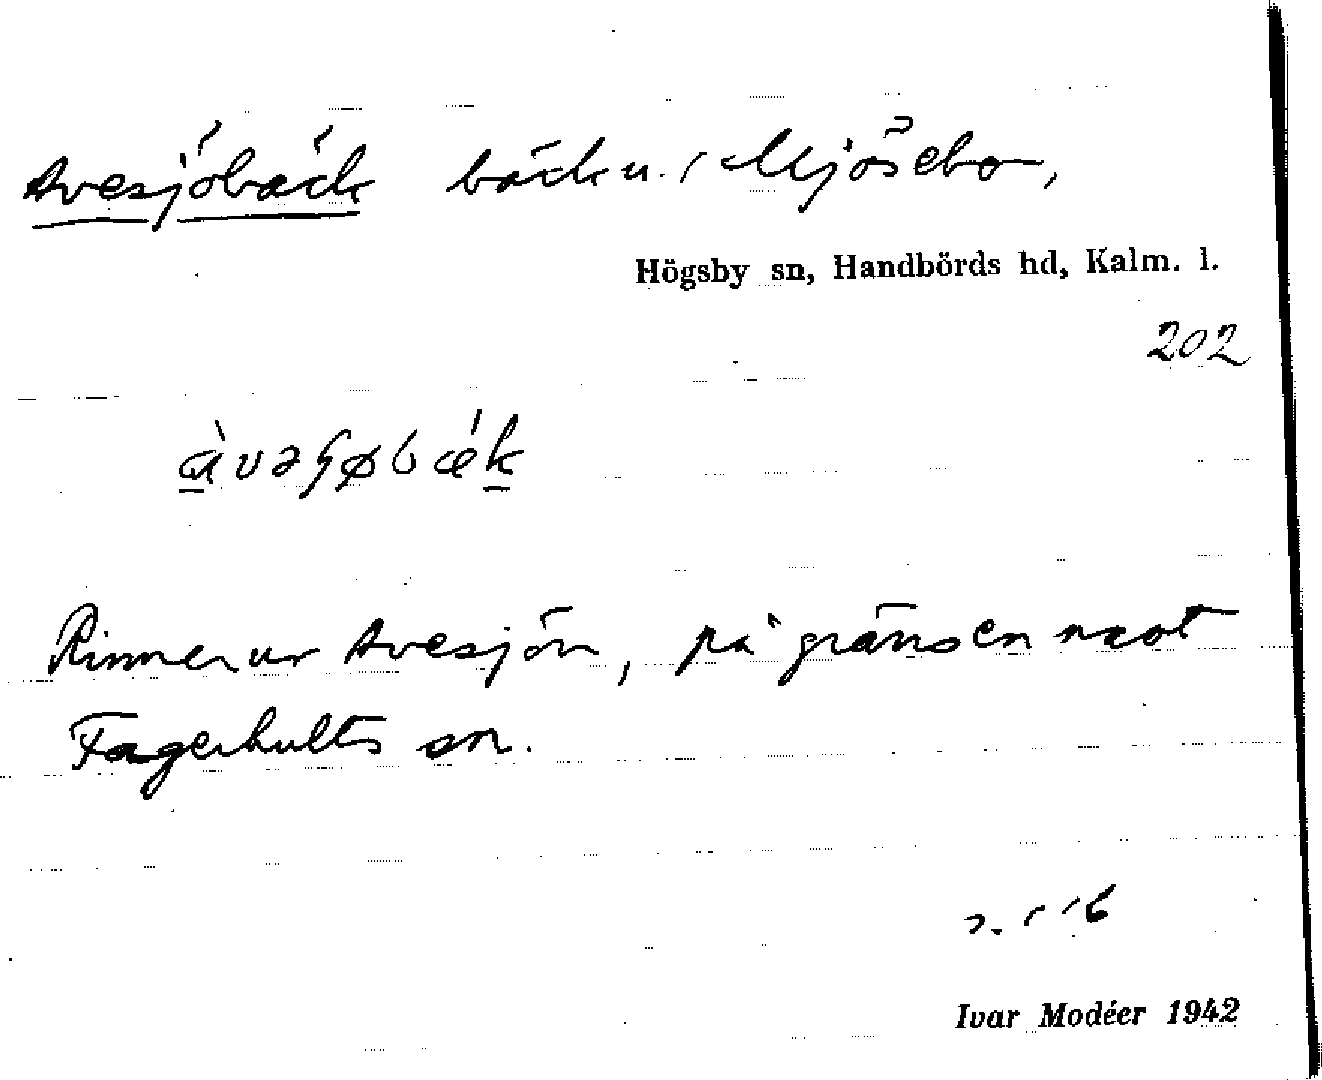 Avesjöbäck bäck u. Mjösebo,
Högsby sn, Handbörds hd, Kalm. l.
202
Rinner ur Avesjön, på gränsen mot
Fagerhults sn.
Ivar Modéer 1942